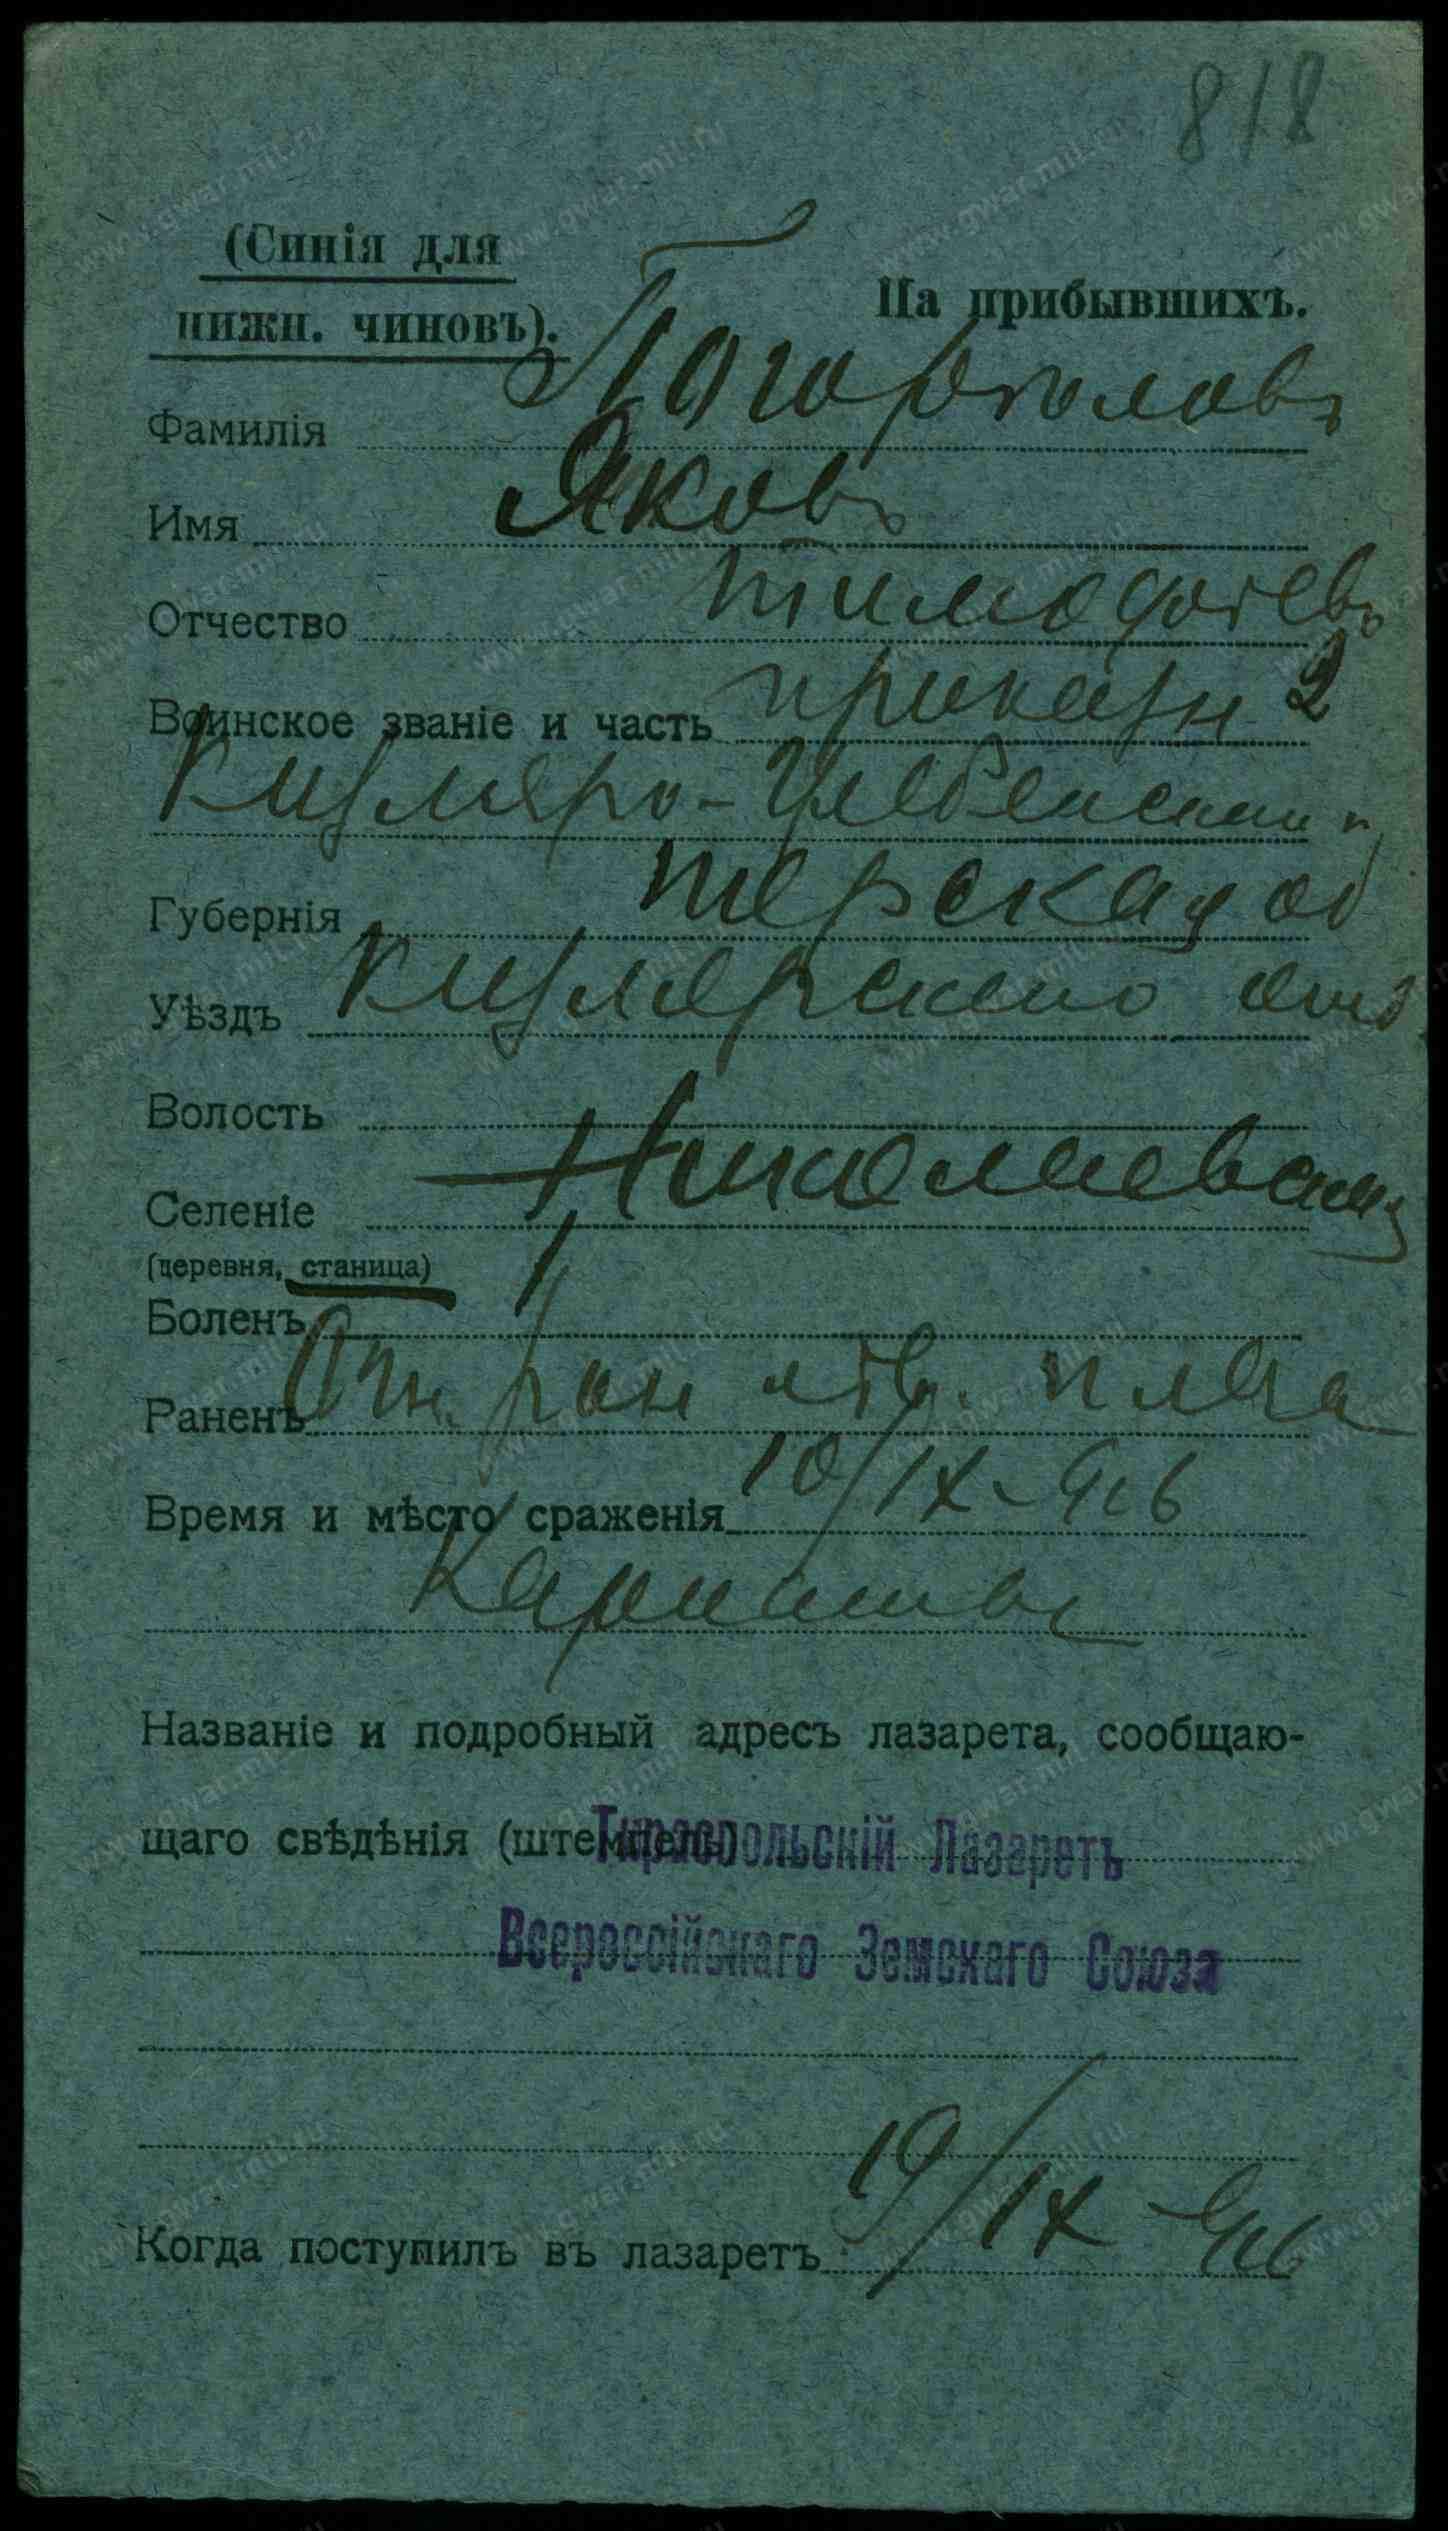 818
(Синія для
нижн. чиновъ).
На прибывшихъ.
Фамилія Погорѣловъ
Имя Яковъ
Отчество Тимофѣевъ
Воинское званіе и часть приказн 2
Кизляро-Гребенской п
Губернія Терская об
Уѣздъ Кизлярскаго отд
Волость
Селеніе Николаевской
(деревня, станица)
Боленъ
Раненъ Огн. ран лѣв. плеча
Время и мѣсто сраженія 10/IX-916
Карпаты
Названіе и подробный адресъ лазарета, сообщаю-
щаго свѣдѣнія (штемпель) Тираспольскій Лазаретъ
Всероссійскаго Земскаго Союза
Когда поступилъ въ лазаретъ 19/IX 916
www.gwar.mil.ru